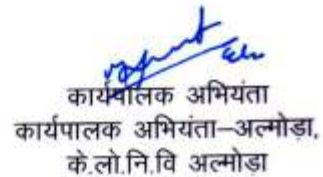 कार्यपालक अभियंता
कार्यपालक अभियंता–अल्मोड़ा,
के.लो.नि.वि अल्मोड़ा